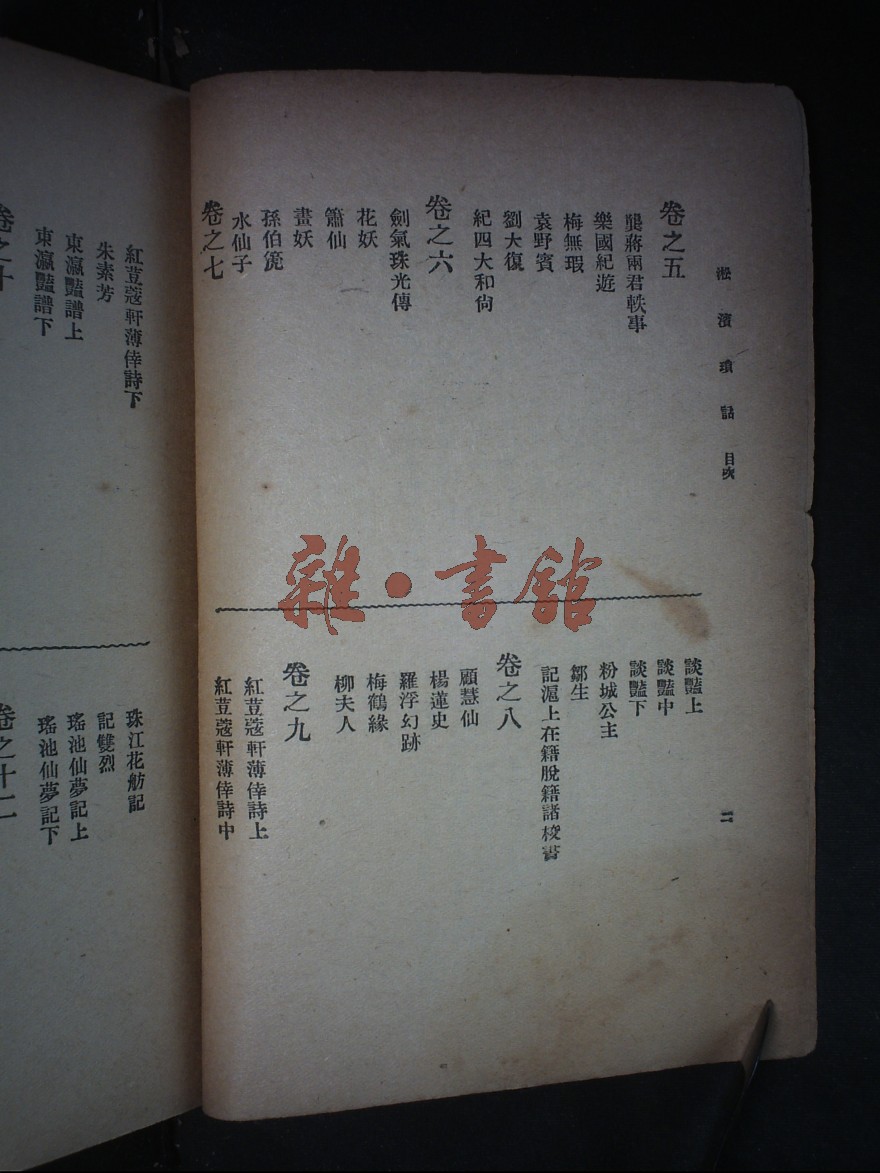 淞濱瑣話 目次
卷之五
龔蔣兩君軼事
樂國紀遊
梅無瑕
袁野賓
劉大復
紀四大和尙
卷之六
劍氣珠光傳
花妖
簫仙
畫妖
孫伯篪
水仙子
卷之七
談豔上
談豔中
談豔下
粉城公主
鄒生
記滬上在籍脫籍諸校書
卷之八
顧慧仙
楊蓮史
羅浮幻跡
梅鶴緣
柳夫人
卷之九
紅荳蔻軒薄倖詩上
紅荳蔻軒薄倖詩中
二
紅荳蔻軒薄倖詩下
朱素芳
東瀛豔譜上
東瀛豔譜下
卷之十
珠江花舫記
記雙烈
瑤池仙夢記上
瑤池仙夢記下
卷之十二
雜·書館